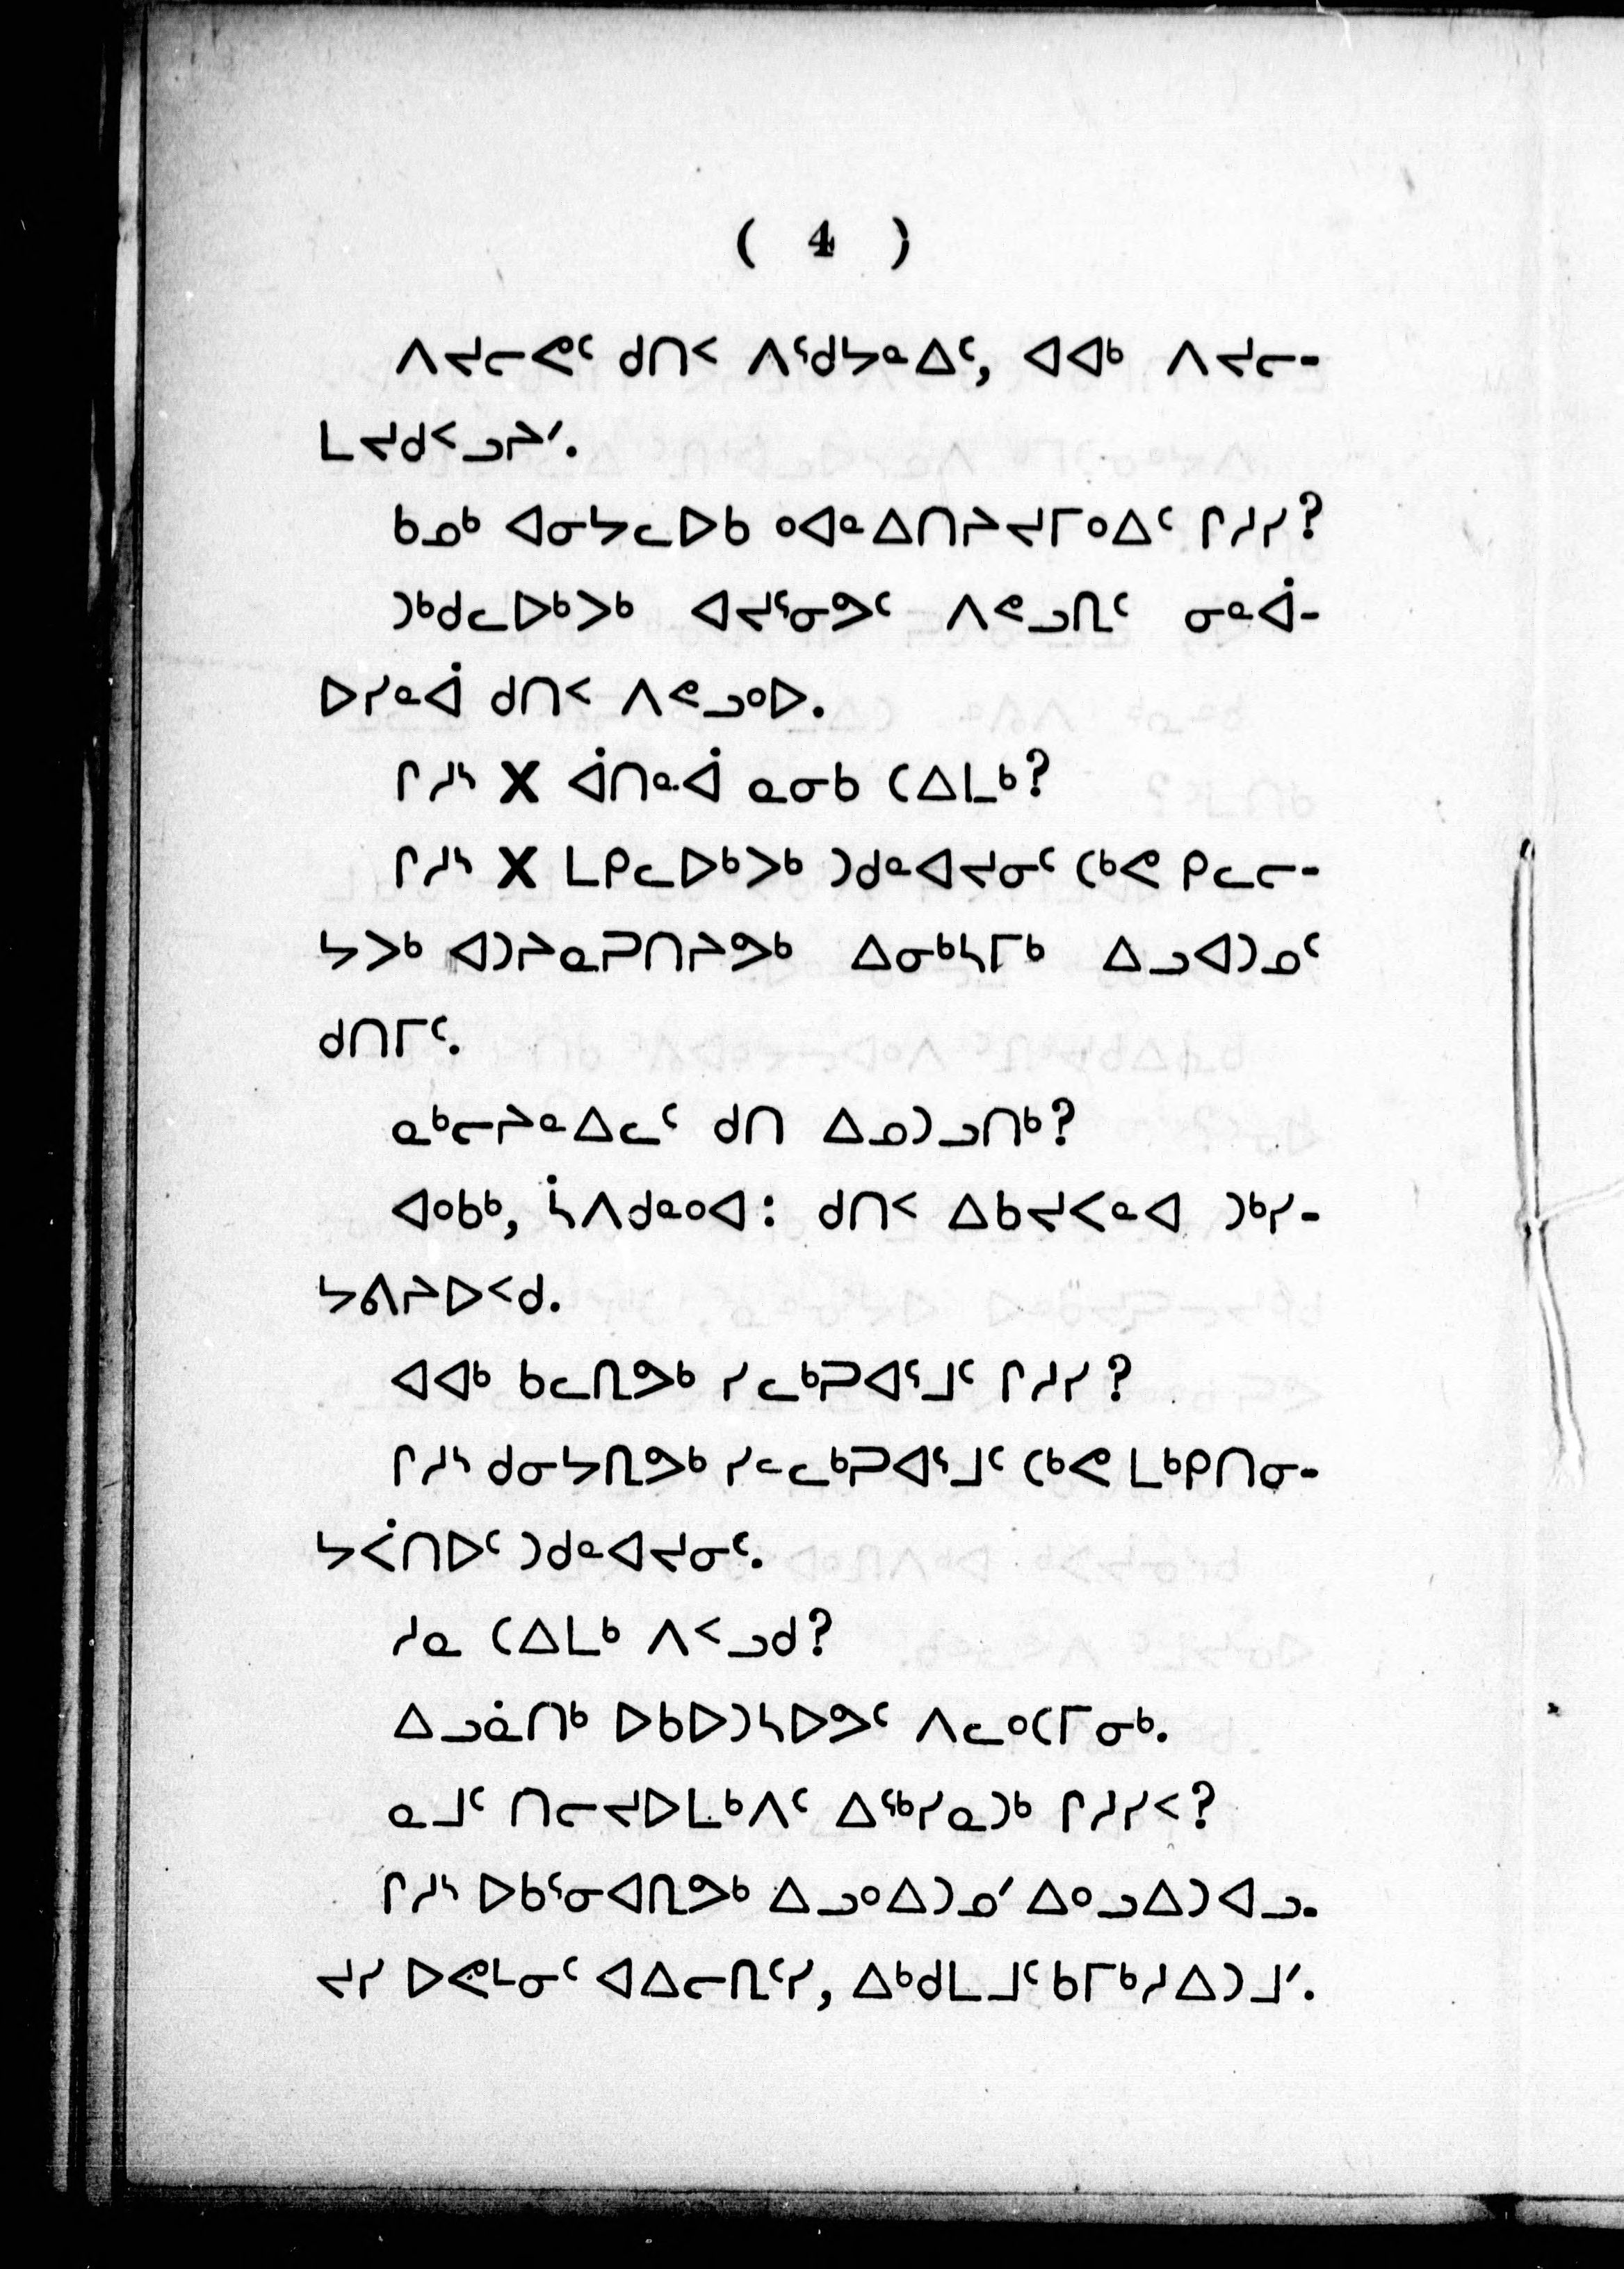 ( 4 )
ᐱᔪᓕᕙᑦ ᑯᑎᑉ ᐱᕐᑯᔭᓐᐃᑦ, ᐊᐊᒃ ᐱᔪᓕ-
ᒪᔪᑯᑉᓗᔨᑊ.
ᑲᓄᒃ ᐊᓂᔭᓚᐅᑲ ᐤᐊᓐᐃᑎᔨᔪᒥᐤᐃᑦ ᒋᓱᓯ?
ᑐᒃᑯᓚᐅᒃᐳᒃ ᐊᔪᕐᓂᕗᑦ ᐱᕝᓗᒋᑦ ᓂᓐᐋ-
ᐅᓯᓐᐋ ᑯᑎᑉ ᐱᕝᓗᐤᐅ.
ᒋᓱᔅ X ᐋᑎᓐᐋ ᓇᓂᑲ ᑕᐃᒪᒃ?
ᒋᓱᔅ X ᒪᑭᓚᐅᒃᐳᒃ ᑐᑯᓐᐊᔪᓂᑦ ᑕᒃᕙ ᑭᓚᓕ-
ᔭᐳᒃ ᐊᑐᔨᓇᑐᑎᔨᕗᒃ ᐃᓂᒃᓴᒥᒃ ᐃᓗᐊᑐᓄᑦ
ᑯᑎᒥᑦ.
ᓇᒃᓕᔨᓐᐃᓚᑦ ᑯᑎ ᐃᓄᑐᓗᑎᒃ?
ᐊᐤᑲᒃ, ᓵᐱᑯᓐᐤᐊ: ᑯᑎᑉ ᐃᑲᔪᐸᓐᐊ ᑐᒃᓯ-
ᔭᕕᔨᐅᑉᑯ.
ᐊᐊᒃ ᑲᓚᒋᕗᒃ ᓯᓚᒃᑐᐊᕐᒧᑦ ᒋᓱᓯ?
ᒋᓱᔅ ᑯᓂᔭᒋᕗᒃ ᓯᓪᓚᒃᑐᐊᕐᒧᑦ ᑕᒃᕙ ᒪᒃᑭᑎᓂ-
ᔭᐹᑎᐅᑦ ᑐᑯᓐᐊᔪᓂᑦ.
ᓱᓇ ᑕᐃᒪᒃ ᐱᑉᓗᑯ?
ᐃᓗᓈᑎᒃ ᐅᑲᐅᑐᓴᐅᕗᑦ ᐱᓚᐤᑕᒥᓂᒃ.
ᓇᒧᑦ ᑎᓕᔪᐅᒪᒃᐱᑦ ᐃᖅᓯᓇᑐᒃ ᒋᓱᓯᑉ?
ᒋᓱᔅ ᐅᑲᕐᓂᐊᒋᕗᒃ ᐃᓗᐤᐃᑐᓄᑊ ᐃᐤᓗᐃᑐᐊᓗ-
ᔪᓯ ᐅᕙᒻᓂᑦ ᐊᐃᓕᒋᑦᓯ, ᐃᒃᑯᒪᒧᑦ ᑲᒥᒃᓱᐃᑐᒧᑊ.